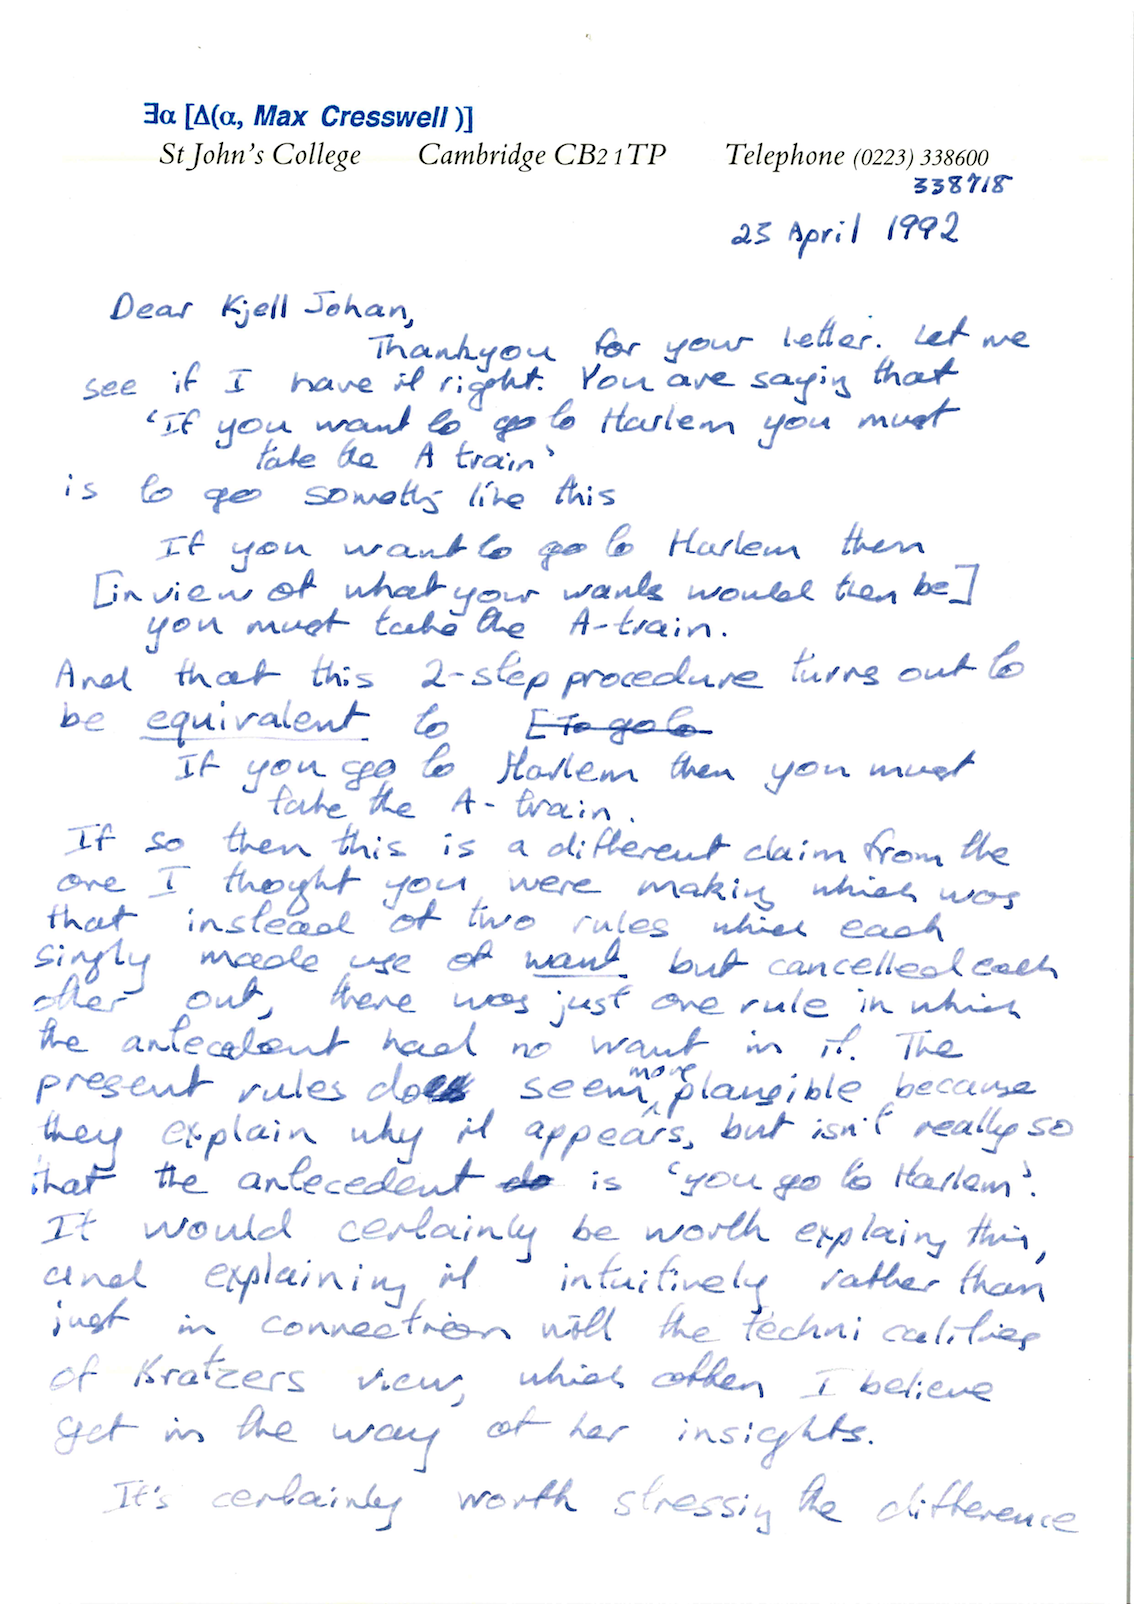 ∃α [Δ(α, Max Cresswell )]
St John's College Cambridge CB2 1TP Telephone (0223) 338600
338718
23 April 1992
Dear Kjell Johan,
Thankyou for your letter. Let me
see if I have it right. You are saying that
'If you want to go to Harlem you must
take the A train'
is to go somethg like this
If you want to go to Harlem then
[in view of what your wants would then be]
you must take the A-train.
And that this 2-step procedure turns out to
be equivalent to [To go to
If you go to Harlem then you must
take the A-train.
If so then this is a different claim from the
one I thought you were making which was
that instead of two rules which each
singly made use of want but cancelled each
other out, there was just one rule in which
the antecedent had no want in it. The
present rules do seem more plausible because
they explain why it appears, but isn't really so
that the antecedent do is 'you go to Harlem'.
It would certainly be worth explaing this,
and explaining it intuitively rather than
just in connection with the technicalities
of Kratzers view, which often I believe
get in the way of her insights.
It's certainly worth stressing the difference